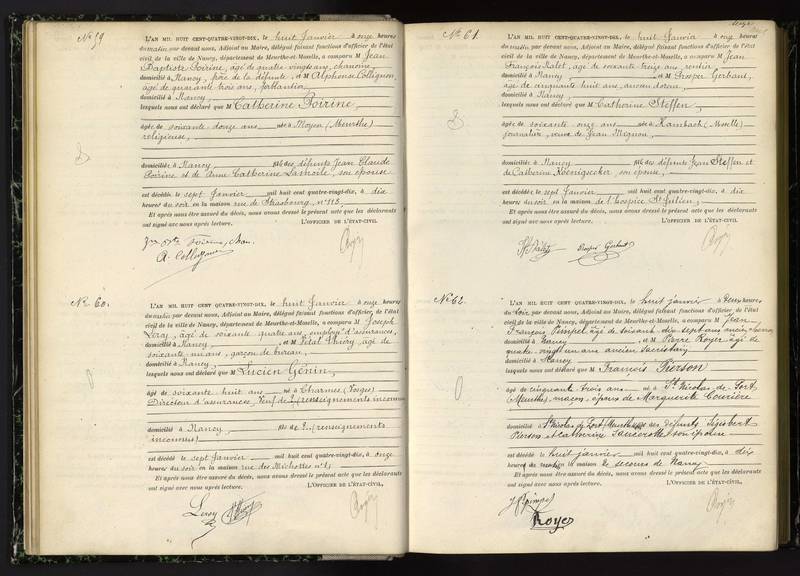 No. 59
L'AN MIL HUIT CENT-QUATRE-VINGT-DIX, le huit Janvier à onze heures
du matin par devant nous, Adjoint au Maire, délégué faisant fonctions d'officier de l'état
civil de la ville de Nancy, département de Meurthe-et-Moselle, a comparu M Jean
Baptiste Poirine, âgé de quatre vingts ans, chanoine,
domicilié à Nancy, frère de la défunte, et M Alphonse Collignon,
âgé de quarante trois ans, ferblantier
domicilié à Nancy,
lesquels nous ont déclaré que M Catherine Poirine,
âgée de soixante douze ans née à Moyen (Meurthe)
religieuse,
domiciliée à Nancy, fille des défunts Jean Claude
Poirine et de Anne Catherine, son épouse
est décédée le sept Janvier mil huit cent quatre-vingt-dix, à dix
heures du soir en la maison rue de Strasbourg, n° 113.
Et après nous être assuré du décès, nous avons dressé le présent acte que les déclarants
ont signé avec nous après lecture. L'OFFICIER DE L'ÉTAT-CIVIL,
A. Collignon
No. 60.
L'AN MIL HUIT CENT QUATRE-VINGT-DIX, le huit Janvier à onze heures
du matin par devant nous, Adjoint au Maire, délégué faisant fonctions d'officier de l'état
civil de la ville de Nancy, département de Meurthe-et-Moselle, a comparu M Joseph
Leroy, âgé de soixante quatre ans, employé d'assurances,
domicilié à Nancy, et M Vital Thiéry, âgé de
soixante un ans, garçon de bureau,
domicilié à Nancy,
lesquels nous ont déclaré que M Lucien Génin,
âgé de soixante huit ans né à Charmes (Vosges)
Directeur d'assurances, Veuf de ? (renseignements inconnus
domicilié à Nancy, fils de ? (renseignements
inconnus)
est décédé le sept Janvier mil huit cent quatre-vingt-dix, à onze
heures du soir en la maison rue des Michottes n° 1,
Et après nous être assuré du décès, nous avons dressé le présent acte que les déclarants
ont signé avec nous après lecture. L'OFFICIER DE L'ÉTAT-CIVIL,
Leroy
No. 61.
L'AN MIL HUIT CENT QUATRE-VINGT-DIX, le huit Janvier à onze heures
du matin par devant nous, Adjoint au Maire, délégué faisant fonctions d'officier de l'état
civil de la ville de Nancy, département de Meurthe-et-Moselle, a comparu M Jean
François, âgé de soixante treize ans, rentier
domicilié à Nancy, et M Prosper Gerbaut,
âgé de cinquante huit ans, ancien doreur,
domicilié à Nancy,
lesquels nous ont déclaré que M Catherine Steffen,
âgée de soixante onze ans née à Hambach (Moselle)
journalière, veuve de Jean Mignon,
domiciliée à Nancy fille des défunts Jean Steffen et
de Catherine Koenigsecker, son épouse,
est décédée le sept Janvier mil huit cent quatre-vingt-dix, à dix
heures du soir en la maison de l'hospice St Julien,
Et après nous être assuré du décès, nous avons dressé le présent acte que les déclarants
ont signé avec nous après lecture. L'OFFICIER DE L'ÉTAT-CIVIL,
Prosper Gerbaut
No. 62.
L'AN MIL HUIT CENT QUATRE-VINGT-DIX, le huit janvier à deux heures
du soir par devant nous, Adjoint au Maire, délégué faisant fonctions d'officier de l'état
civil de la ville de Nancy, département de Meurthe-et-Moselle, a comparu M Jean
François Pimpel âgé de soixant dix sept ans ancien
domicilié à Nancy et M Pierre Royer âgé de
quatre vingt un ans ancien sacristain
domicilié à Nancy
lesquels nous ont déclaré que M François Pierson
âgé de cinquante trois ans né à St Nicolas de Port
(Meurthe), maçon, époux de Marguerite Courière
domicilié à St Nicolas de Port (Meurthe) fils des défunts Sigisbert
Pierson et Catherine son épouse
est décédé le huit janvier mil huit cent quatre-vingt-dix, à dix
heures du matin en la maison de secours de Nancy
Et après nous être assuré du décès, nous avons dressé le présent acte que les déclarants
ont signé avec nous après lecture. L'OFFICIER DE L'ÉTAT-CIVIL,
Royer